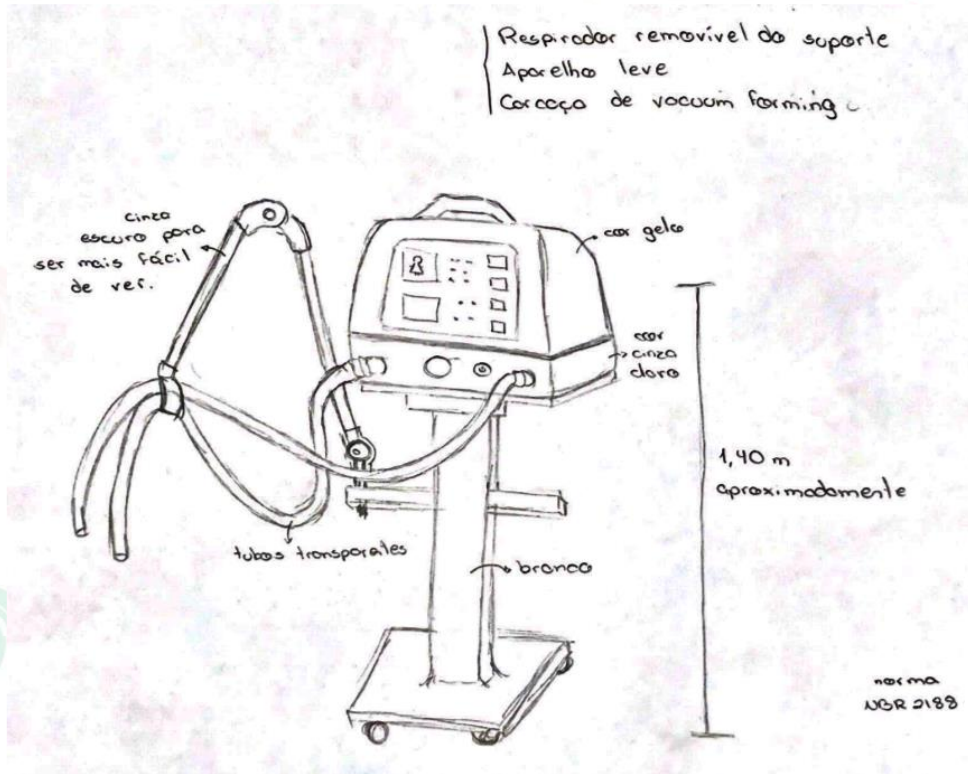 Respirador removível do suporte
Aparelho leve
Carcaça de vacuum forming
cinza
escuro para
ser mais fácil
de ver.
cor gelo
cor
cinza
claro
1,40 m
aproximadamente
tubos transparates
branco
norma
NBR 2188